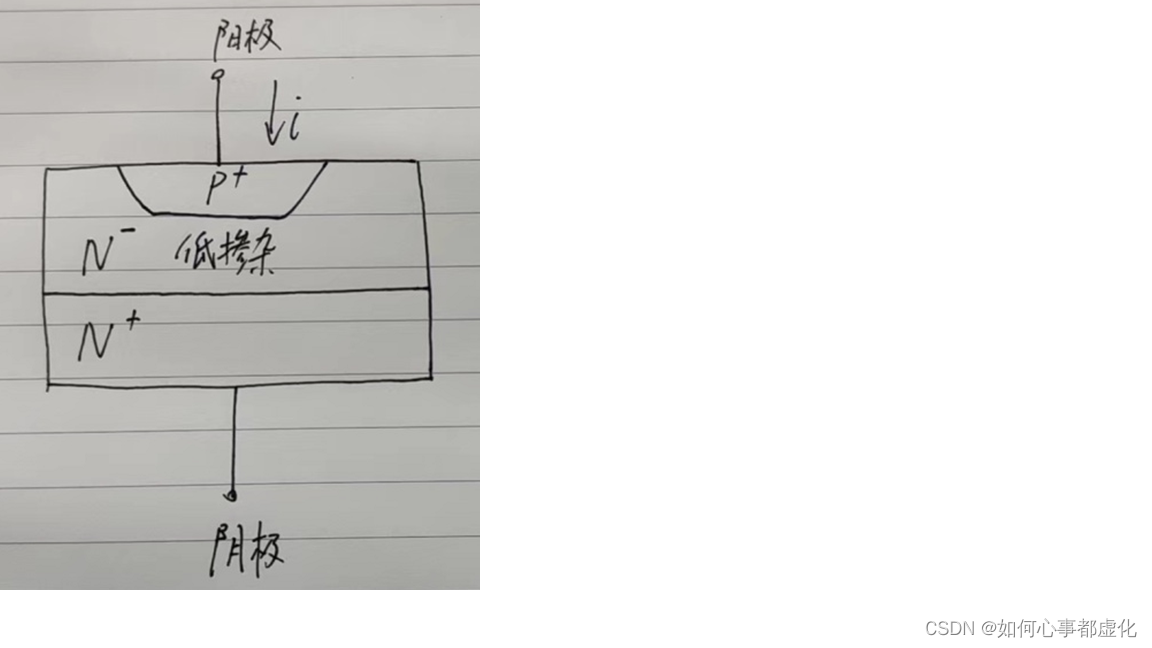 阳极
i
P+
N- 低掺杂
N+
阴极
CSDN @如何心事都虚化